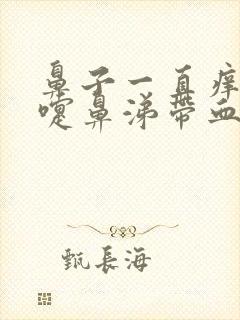 鼻子一直痒
嚏鼻涕带血
甄長海